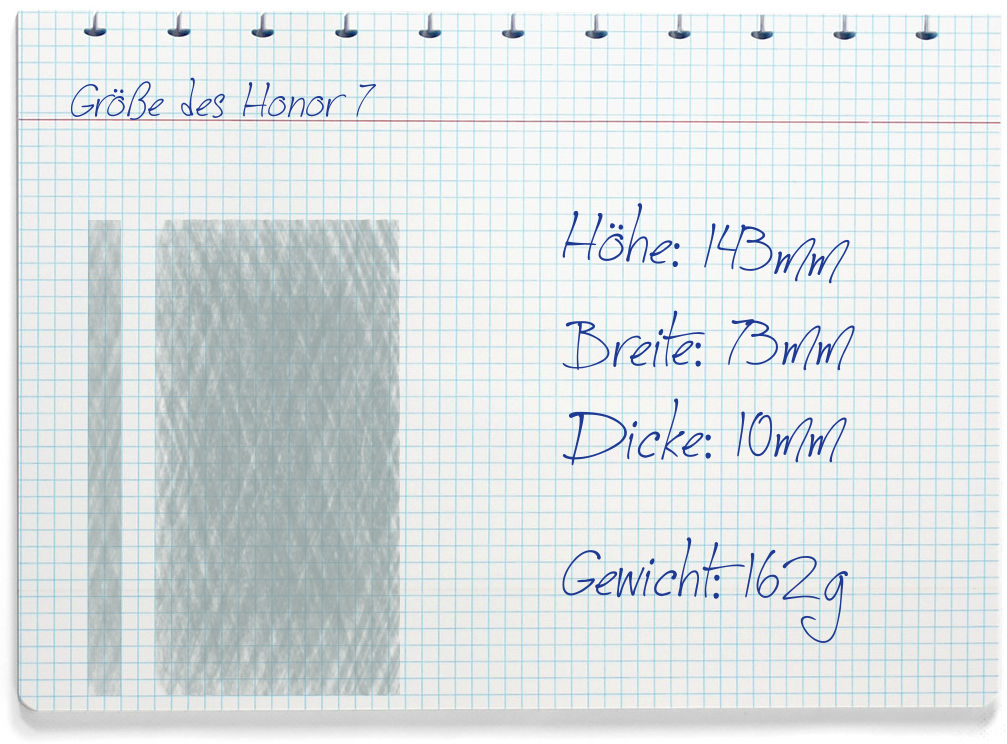 Größe des Honor 7
Höhe: 143mm
Breite: 73mm
Dicke: 10mm
Gewicht: 162g